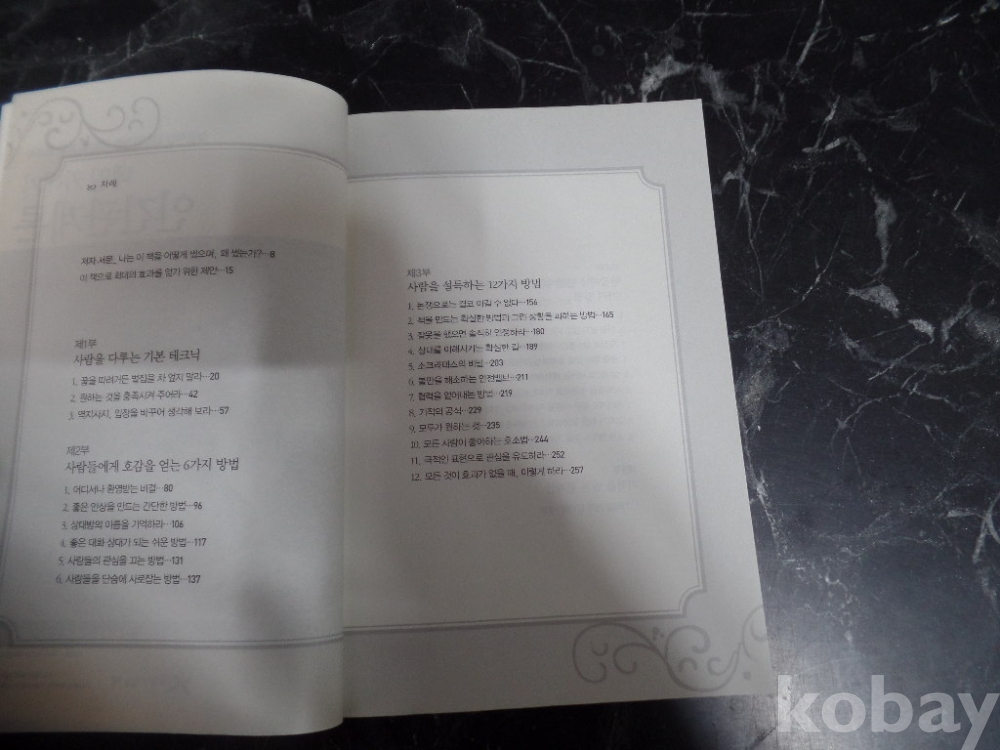 차례
저자 서문, 나는 이 책을 어떻게 썼으며, 왜 썼는가?…8
이 책으로 최대의 효과를 얻기 위한 제안…15
제1부
사람을 다루는 기본 테크닉
1. 꿀을 따려거든 벌집을 차 엎지 말라…20
2. 원하는 것을 충족시켜 주어라…42
3. 역지사지, 입장을 바꾸어 생각해 보라…57
제2부
사람들에게 호감을 얻는 6가지 방법
1. 어디서나 환영받는 비결…80
2. 좋은 인상을 만드는 간단한 방법…96
3. 상대방의 이름을 기억하라…106
4. 좋은 대화 상대가 되는 쉬운 방법…117
5. 사람들의 관심을 끄는 방법…131
6. 사람들을 단숨에 사로잡는 방법…137
제3부
사람을 설득하는 12가지 방법
1. 논쟁으로는 결코 이길 수 없다…156
2. 적을 만드는 확실한 방법과 그런 상황을 피하는 방법…165
3. 잘못을 했으면 솔직히 인정하라…180
4. 상대를 이해시키는 확실한 길…189
5. 소크라테스의 비밀…203
6. 불만을 해소하는 안전밸브…211
7. 협력을 얻어내는 방법…219
8. 기적의 공식…229
9. 모두가 원하는 것…235
10. 모든 사람이 좋아하는 호소법…244
11. 극적인 표현으로 관심을 유도하라…252
12. 모든 것이 효과가 없을 때, 이렇게 하라…257
kobay